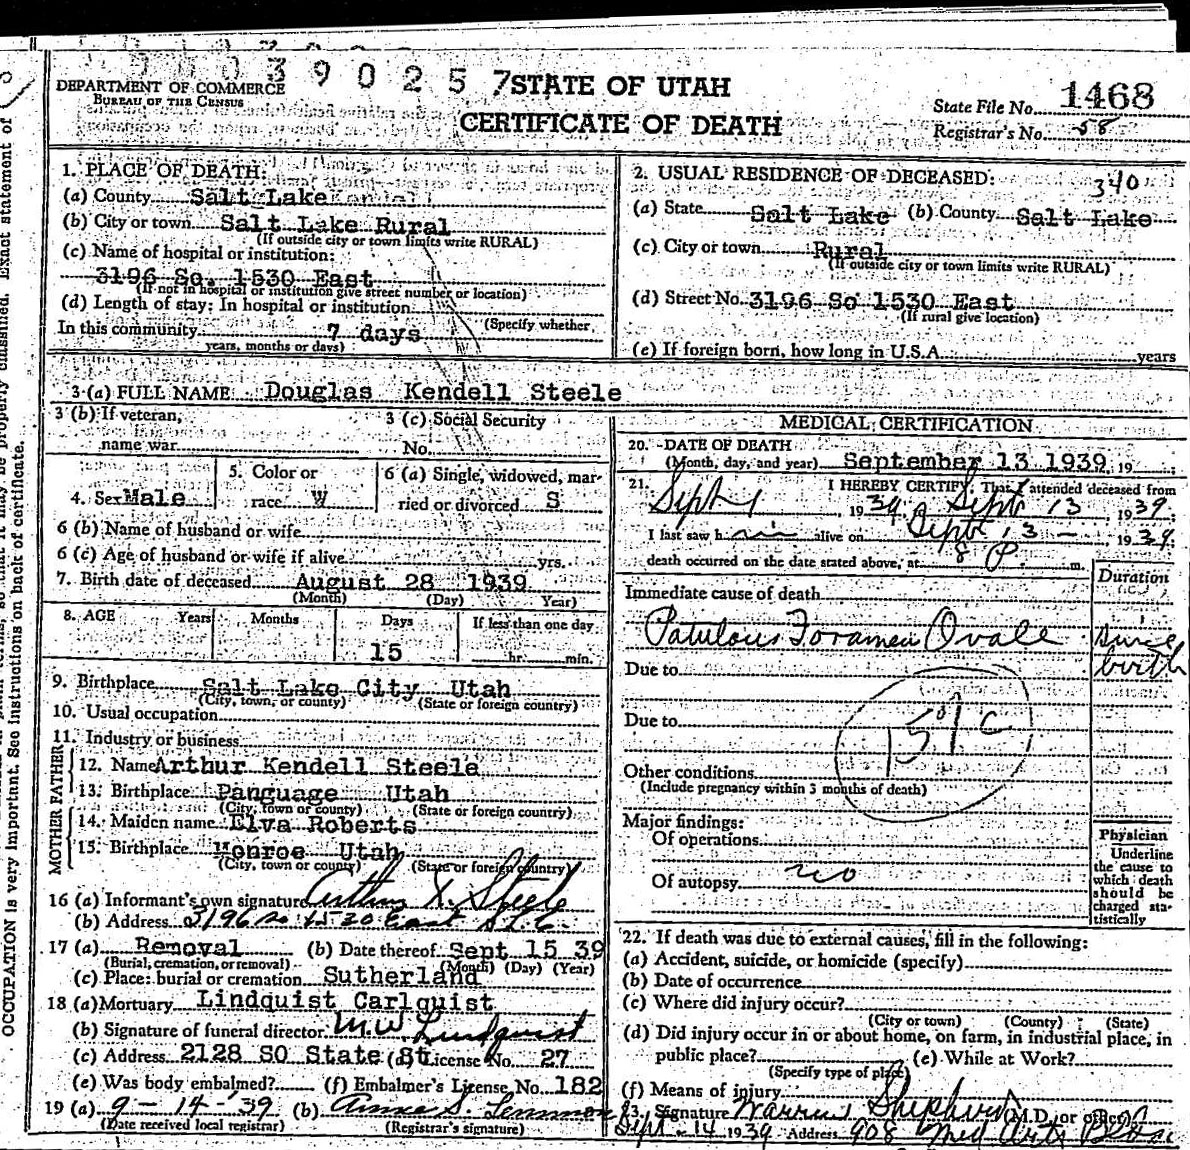 39 0 2 5 7
DEPARTMENT OF COMMERCE
BUREAU OF THE CENSUS
STATE OF UTAH
CERTIFICATE OF DEATH
State File No. 1468
Registrar's No. 58
1. PLACE OF DEATH:
(a) County Salt Lake
(b) City or town Salt Lake Rural
(If outside city or town limits write RURAL)
(c) Name of hospital or institution:
3196 So. 1530 East
(If not in hospital or institution give street number or location)
(d) Length of stay: In hospital or institution
(Specify whether
In this community 7 days
years, months or days)
2. USUAL RESIDENCE OF DECEASED: 340
(a) State Salt Lake (b) County Salt Lake
(c) City or town Rural
(If outside city or town limits write RURAL)
(d) Street No. 3196 So 1530 East
(If rural give location)
(e) If foreign born, how long in U.S.A. years
3 (a) FULL NAME Douglas Kendell Steele
3 (b) If veteran, name war
3 (c) Social Security No.
4. Sex Male
5. Color or race W
6 (a) Single, widowed, married or divorced S
6 (b) Name of husband or wife
6 (c) Age of husband or wife if alive yrs.
7. Birth date of deceased August 28 1939
(Month) (Day) Year)
8. AGE Years Months Days If less than one day
15 hr. min.
9. Birthplace Salt Lake City Utah
(City, town, or county) (State or foreign country)
10. Usual occupation
11. Industry or business
FATHER
12. Name Arthur Kendell Steele
13. Birthplace Panguage Utah
(City, town or county) (State or foreign country)
MOTHER
14. Maiden name Elva Roberts
15. Birthplace Monroe Utah
(City, town or county) (State or foreign country)
16 (a) Informant's own signature Arthur K. Steele
(b) Address 3196 So 1530 East S.L.C.
17 (a) Removal (b) Date thereof Sept 15 39
(Burial, cremation, or removal) (Month) (Day) (Year)
(c) Place: burial or cremation Sutherland
18 (a) Mortuary Lindquist Carlquist
(b) Signature of funeral director M.W. Lindquist
(c) Address 2128 SO State St (d) License No. 27
(e) Was body embalmed? (f) Embalmer's License No. 182
19 (a) 9-14-'39 (b) Annie S. Lemmon
(Date received local registrar) (Registrar's signature)
MEDICAL CERTIFICATION
20. DATE OF DEATH
(Month, day, and year) September 13 1939, 19
21. I HEREBY CERTIFY, That I attended deceased from
Sept 1, 1939, Sept 13, 1939.
I last saw him alive on Sept 13 - 1939.
death occurred on the date stated above, at 8 P. m.
Duration
Immediate cause of death
Patulous Foramen Ovale since birth
Due to
Due to
157 c
Other conditions
(Include pregnancy within 3 months of death)
Major findings:
Of operations
Of autopsy no
Physician
Underline
the cause to
which death
should be
charged sta-
tistically
22. If death was due to external causes, fill in the following:
(a) Accident, suicide, or homicide (specify)
(b) Date of occurrence
(c) Where did injury occur?
(City or town) (County) (State)
(d) Did injury occur in or about home, on farm, in industrial place, in
public place? (e) While at Work?
(Specify type of place)
(f) Means of injury
23. Signature Shepherd (M.D. or other)
Sept. 14 1939 Address 908 Med Arts
OCCUPATION is very important. See instructions on back of certificate.
properly classified. Exact statement of